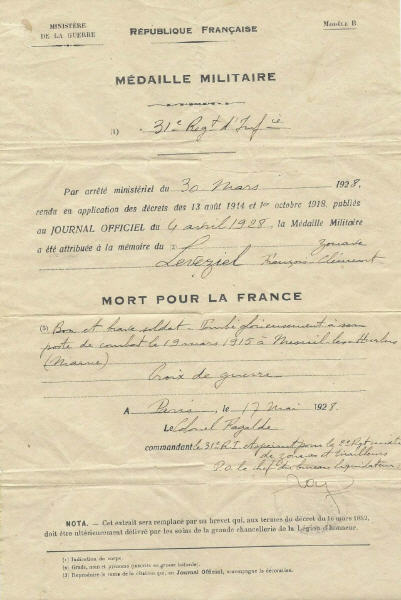 MINISTÈRE
DE LA GUERRE
RÉPUBLIQUE FRANÇAISE
MODÈLE B
MÉDAILLE MILITAIRE
(1) 31e Regt d'Infie
Par arrêté ministériel du 30 Mars 1928,
rendu en application des décrets des 13 août 1914 et 1er octobre 1918, publiés
au JOURNAL OFFICIEL du 4 avril 1928, la Médaille Militaire
a été attribuée à la mémoire du (2) zouave
Levéziel François-Clément
MORT POUR LA FRANCE
(3) Bon et brave soldat - Tombé glorieusement à son
poste de combat le 19 mars 1915 à Mesnil-les-Hurlus
(Marne)
Croix de guerre
A Paris, le 17 Mai 1928.
Le Colonel Fagalde
commandant le 31e R.I.
de zouaves et tirailleurs
P.O. le chef du bureau liquidateur
NOTA. — Cet extrait sera remplacé par un brevet qui, aux termes du décret du 16 mars 1852,
doit être ultérieurement délivré par les soins de la grande chancellerie de la Légion d'honneur.
(1) Indication du corps.
(2) Grade, nom et prénoms (inscrits en grosse bâtarde).
(3) Reproduire le texte de la citation qui, au Journal Officiel, accompagne la décoration.